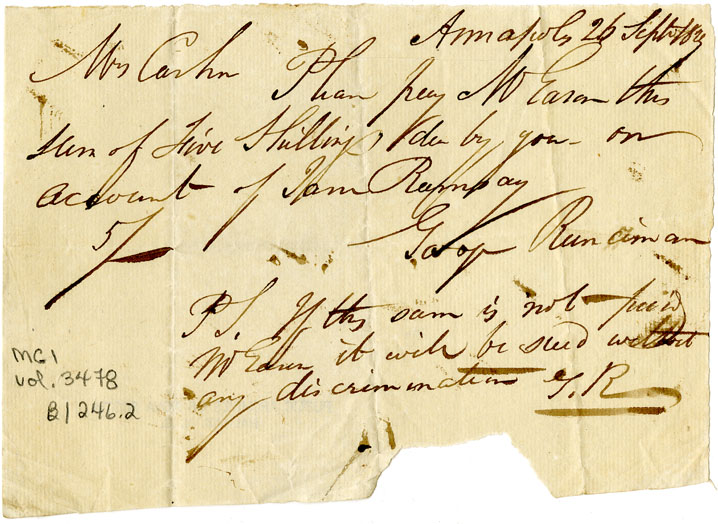 Annapolis 26 Sept
Mrs Please pay Mr Earan this
sum of five Shillings due by you on
account of Ramsay
5/- Runciman
P.S. If this sum is not paid
it will be sued without
any discrimination G. R
MG1
vol. 3478
B/246.2